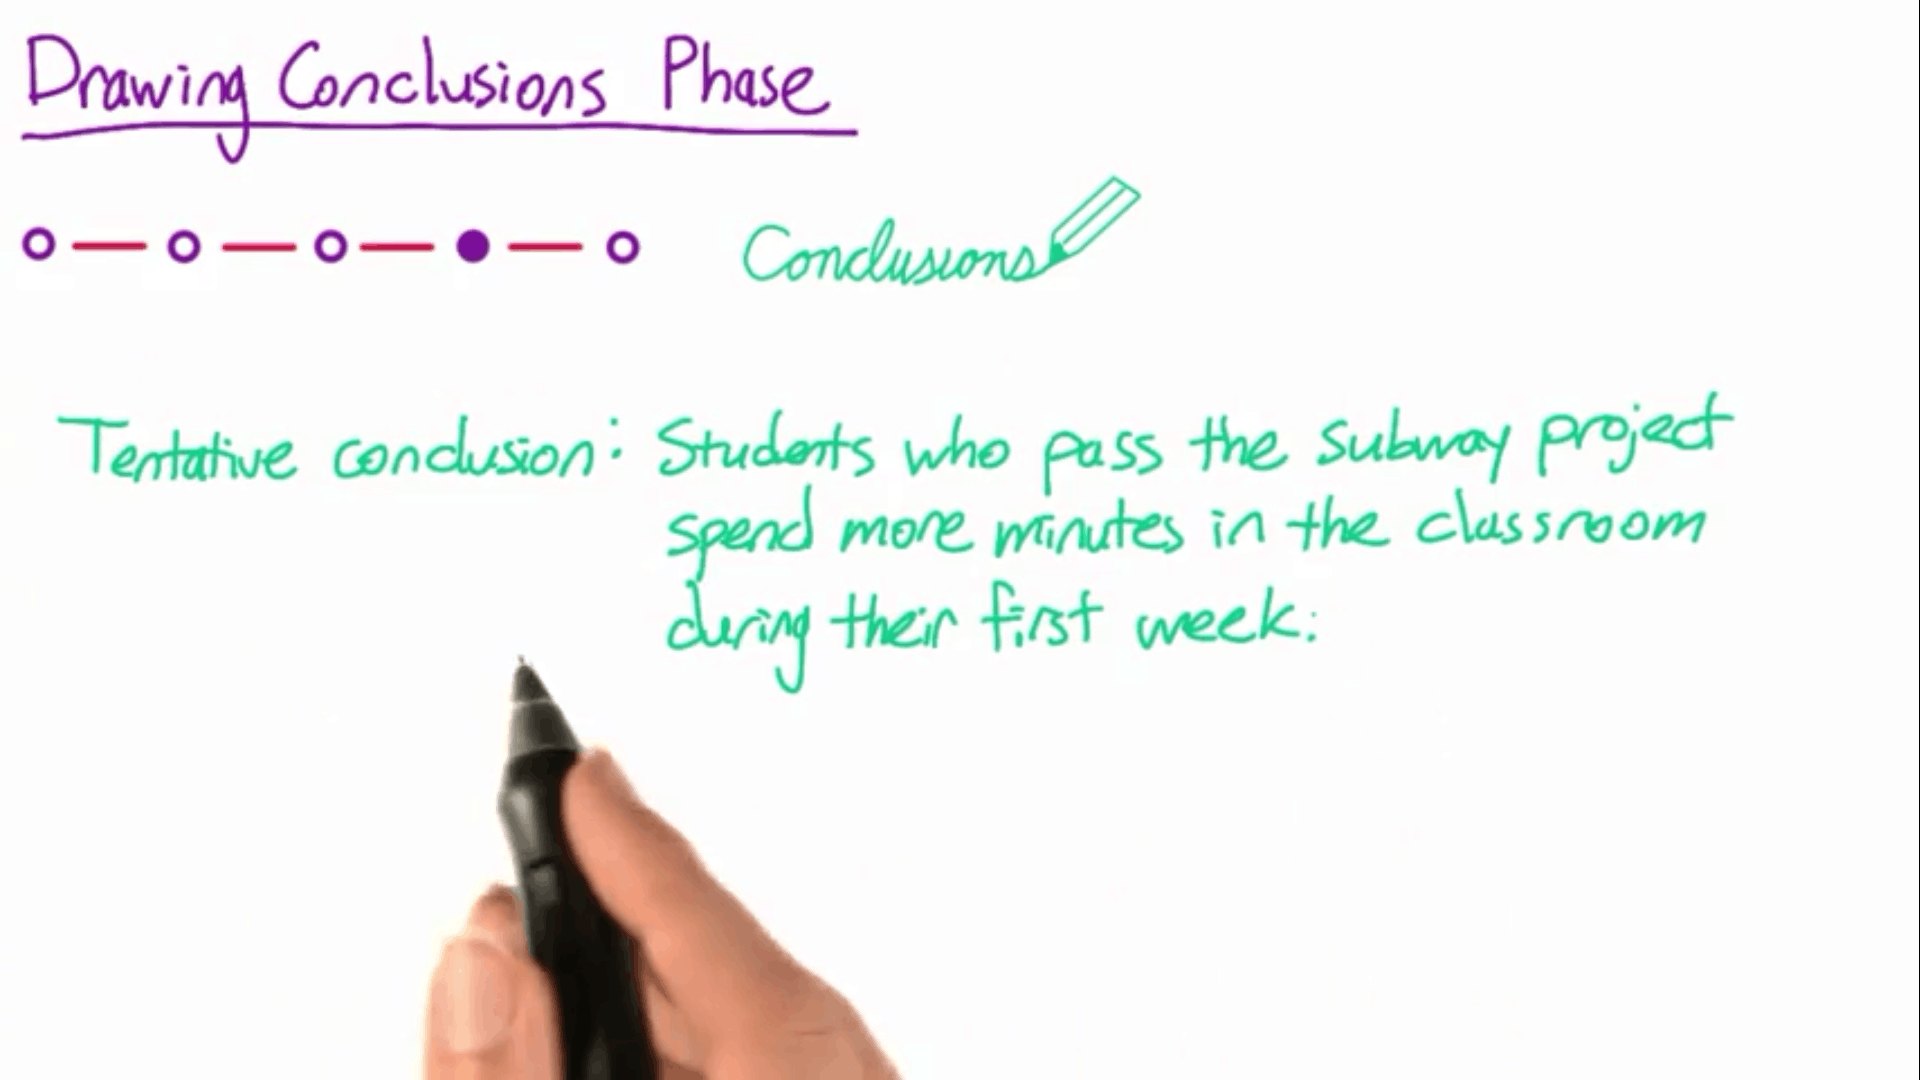 Drawing Conclusions Phase
Conclusions
Tentative conclusion: Students who pass the subway project
spend more minutes in the classroom
during their first week.